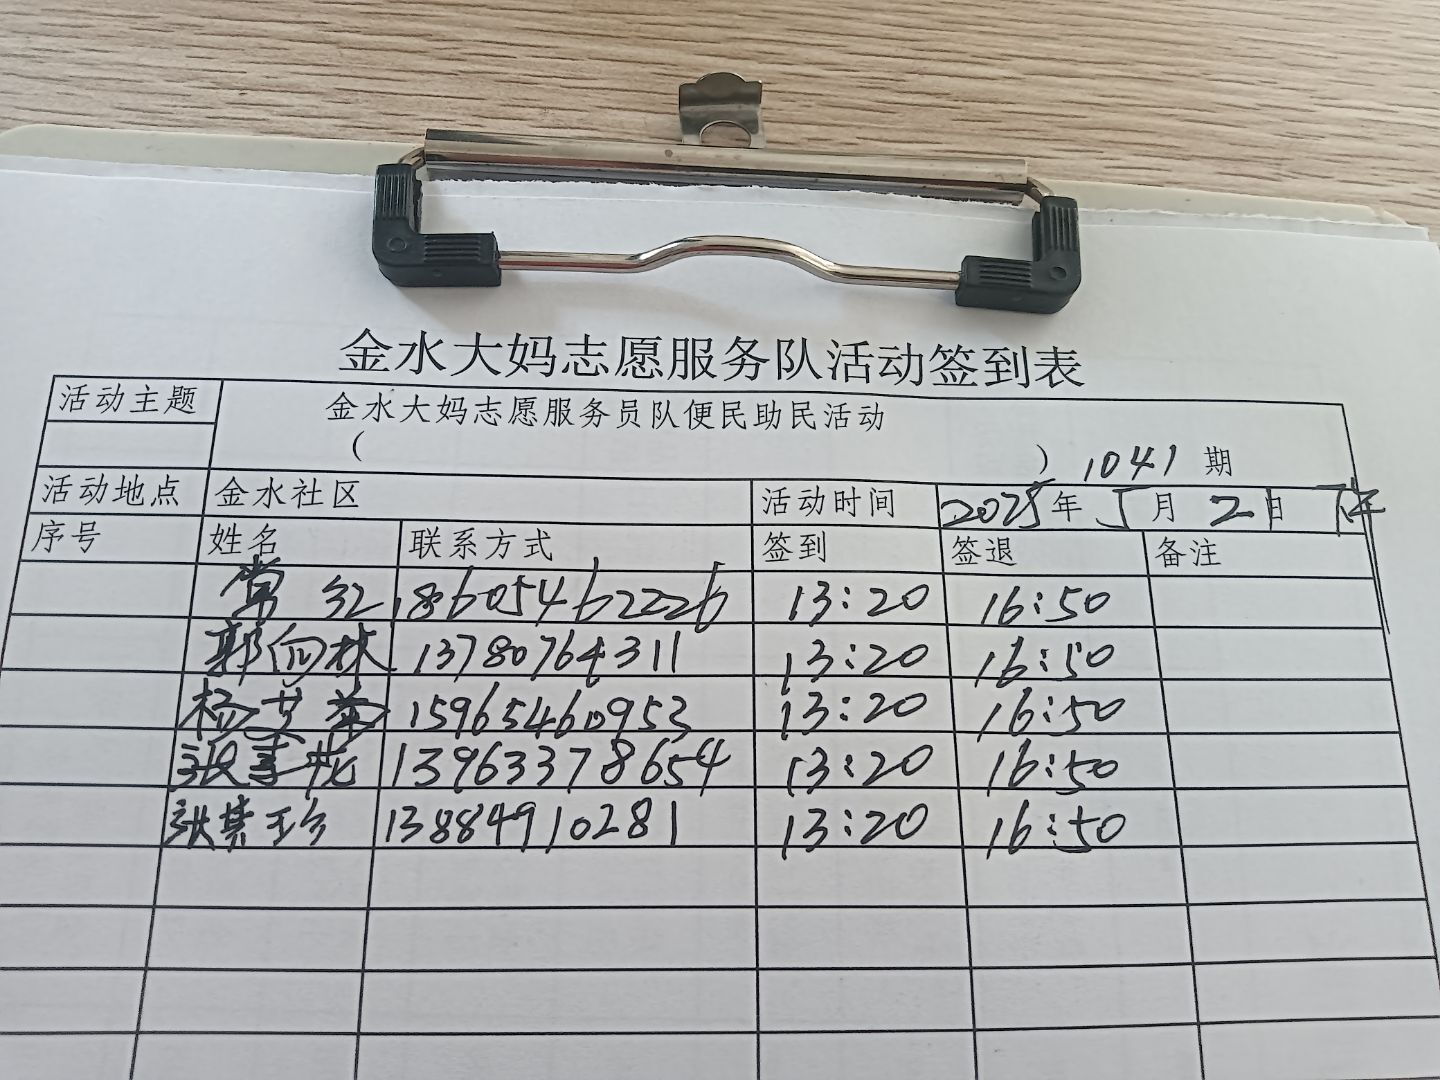 金水大妈志愿服务队活动签到表
活动主题 金水大妈志愿服务员队便民助民活动
( ) 1041 期
活动地点 金水社区 活动时间 2025年 5月 2日 下午
序号 姓名 联系方式 签到 签退 备注
常红 18605462226 13:20 16:50
郭向林 13780764311 13:20 16:50
杨艾菊 15965460953 13:20 16:50
张李花 13963378654 13:20 16:50
张其珍 13884910281 13:20 16:50